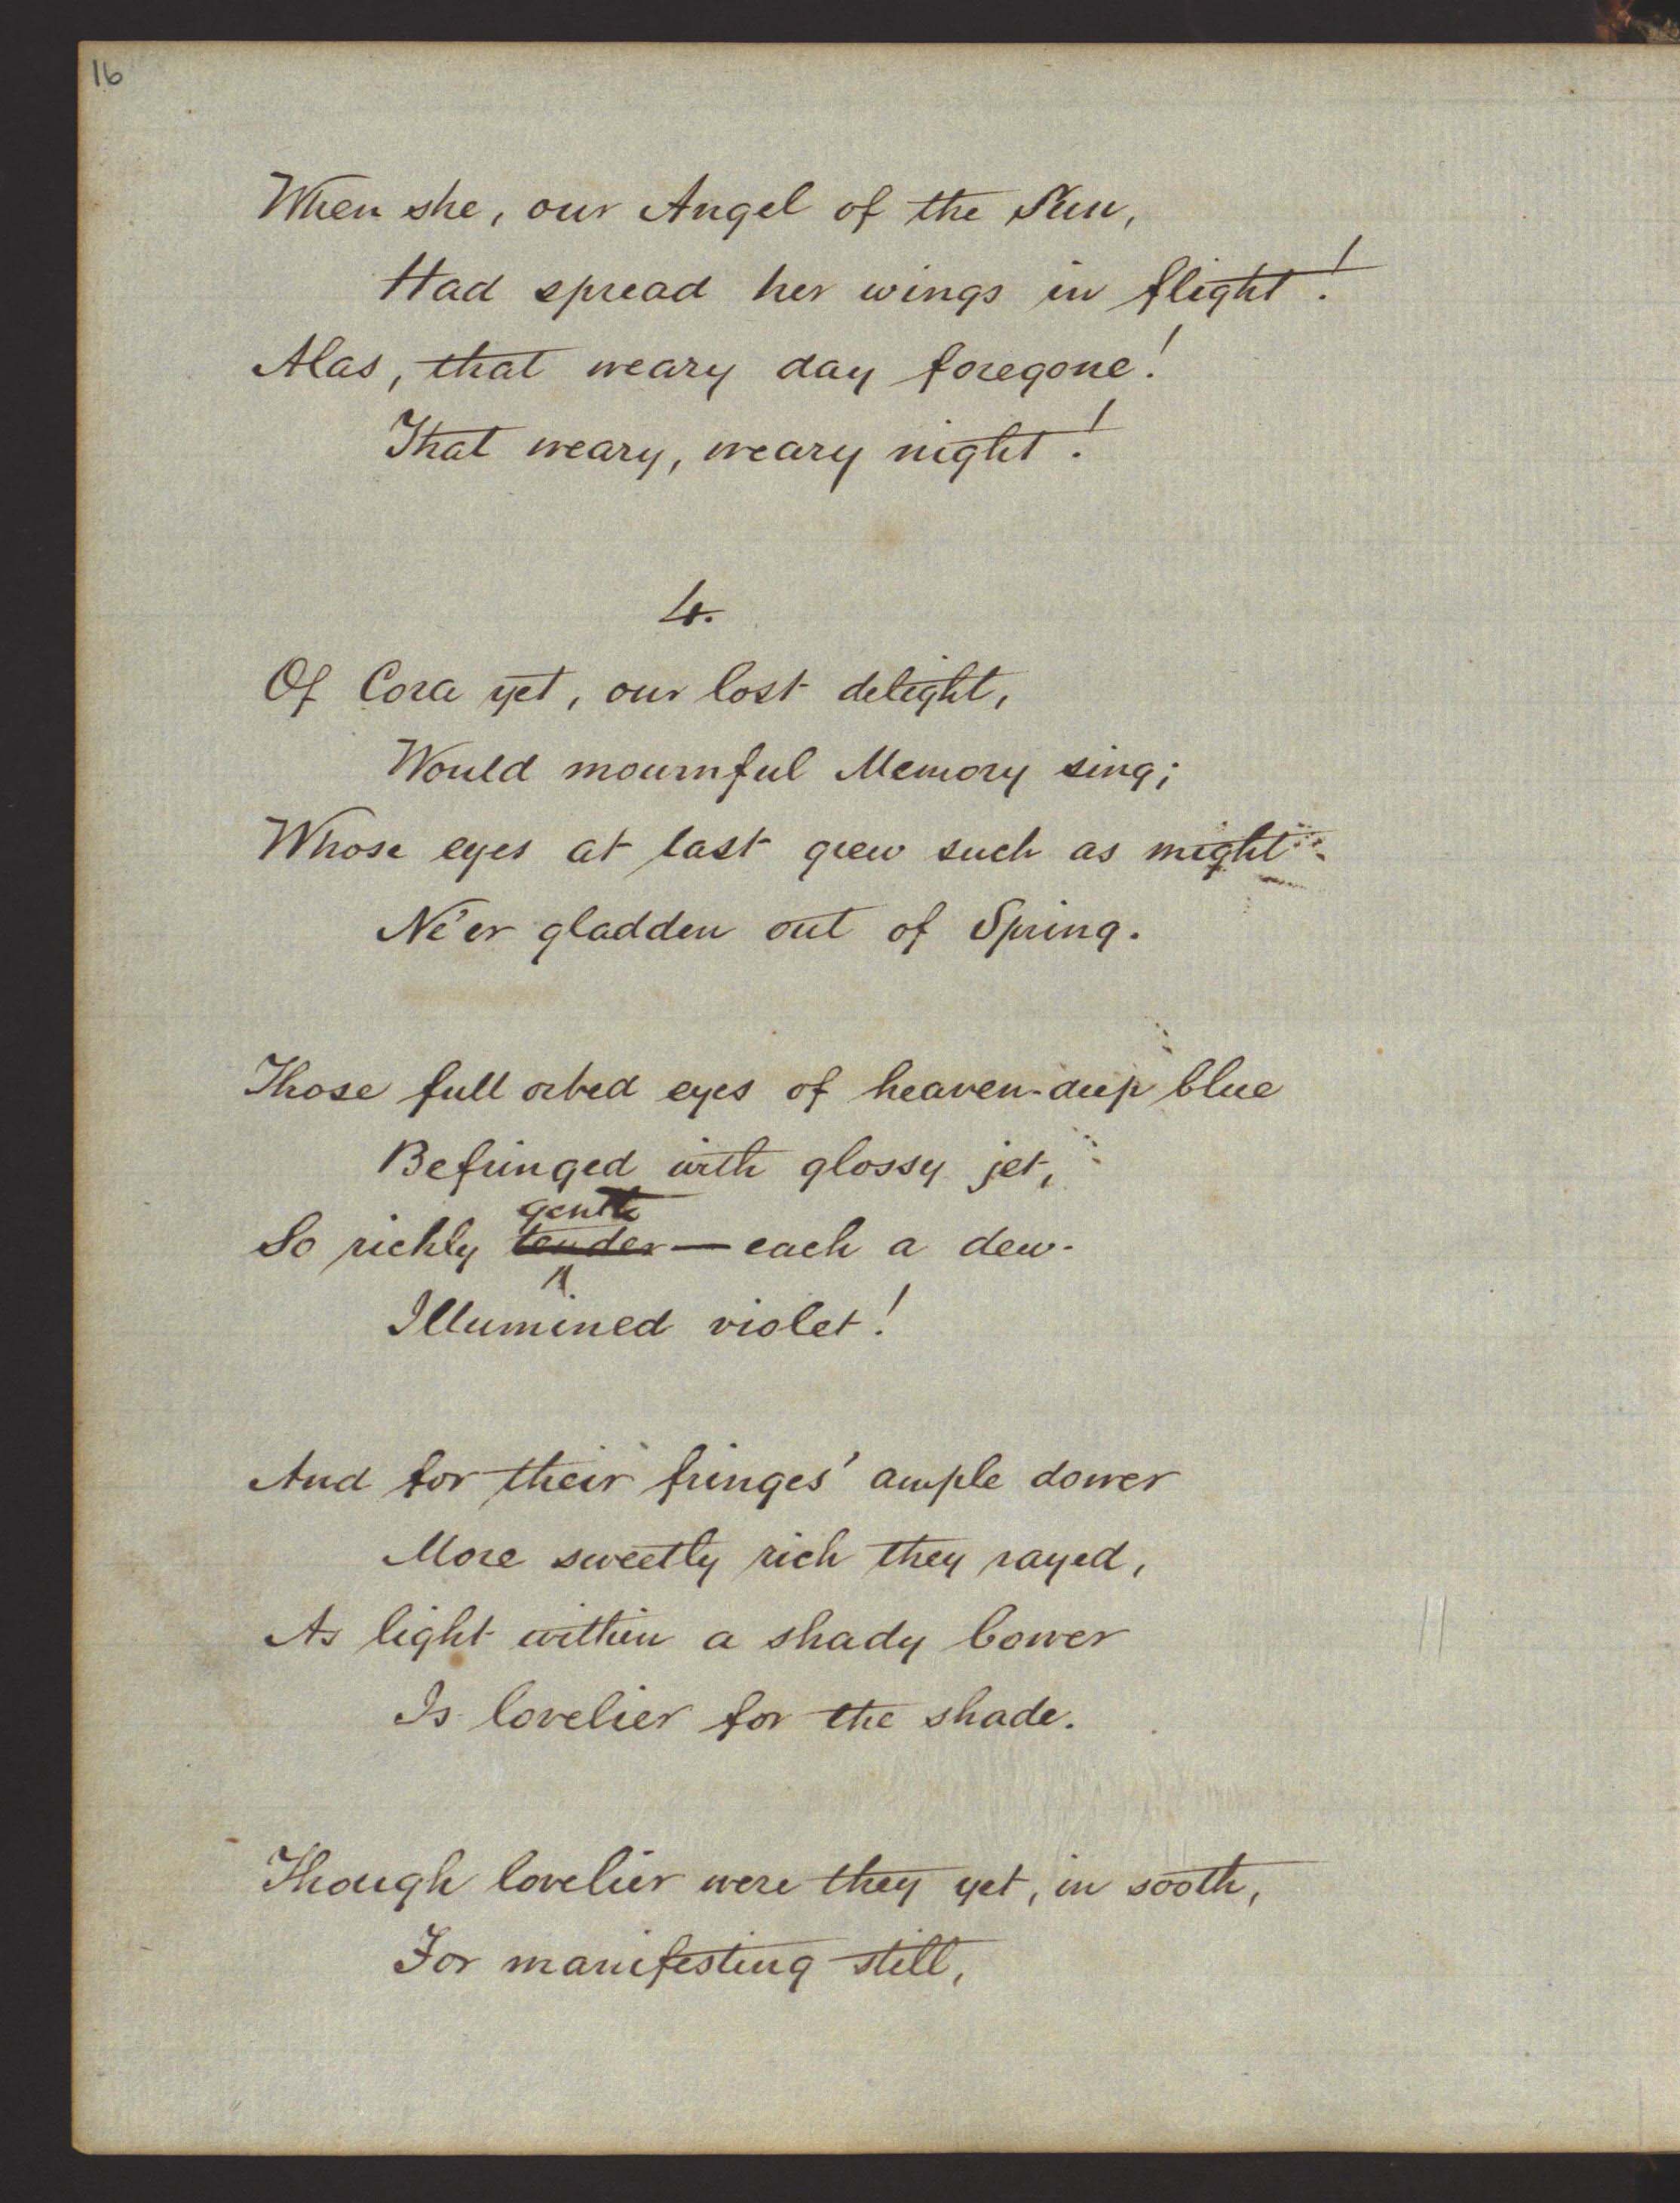 16
When she, our Angel of the Sun,
Had spread her wings in flight!
Alas, that weary day foregone!
That weary, weary night!
4.
Of Cora yet, our lost delight,
Would mournful Memory sing;
Whose eyes at last grew such as might
Ne'er gladden out of Spring.
Those full orbed eyes of heaven-deep blue
Befringed with glossy jet,
gentle
So richly tender — each a dew-
Illumined violet!
And for their fringes' ample dower
More sweetly rich they rayed,
As light within a shady bower
Is lovelier for the shade.
Though lovelier were they yet, in sooth,
For manifesting still,